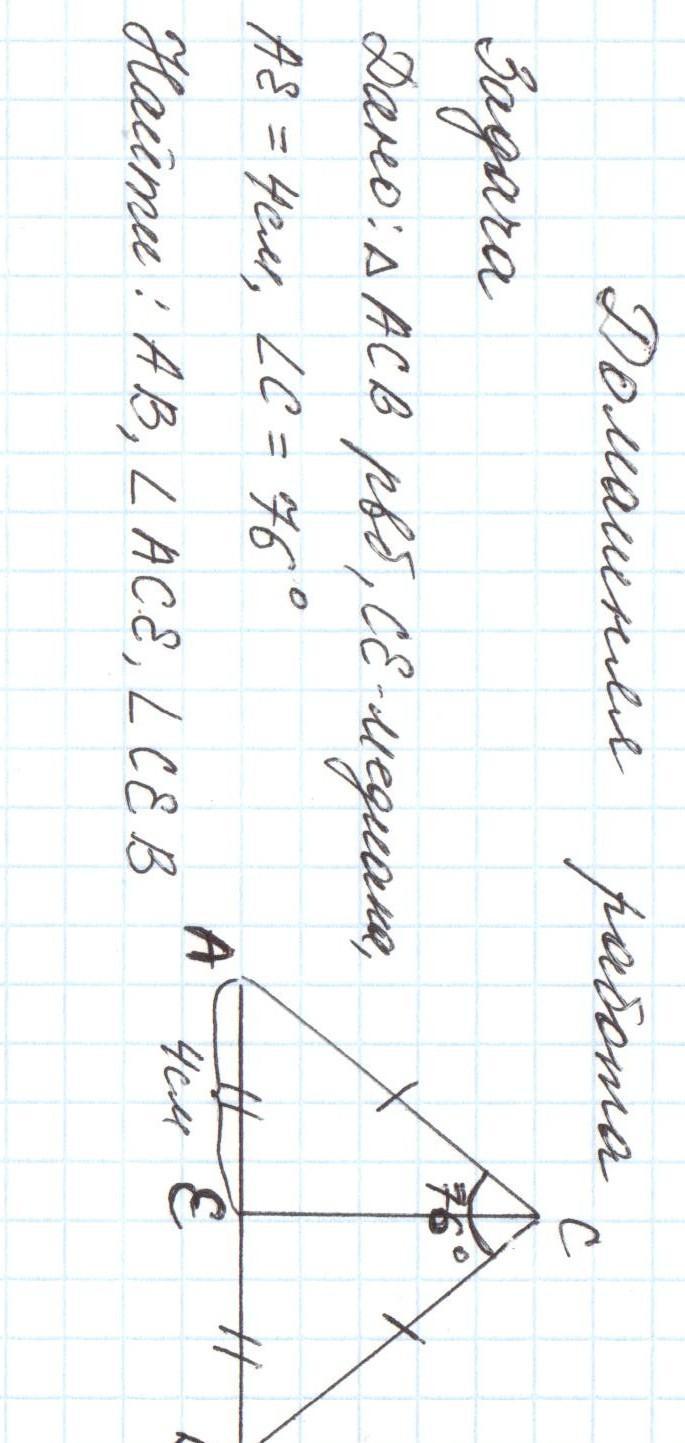 Домашняя работа
Задача
Дано: △ ACB рвб, CE - медиана,
AE = 4см, ∠C = 76°
Найти: AB, ∠ACE, ∠CEB
C
76°
A
4см
E